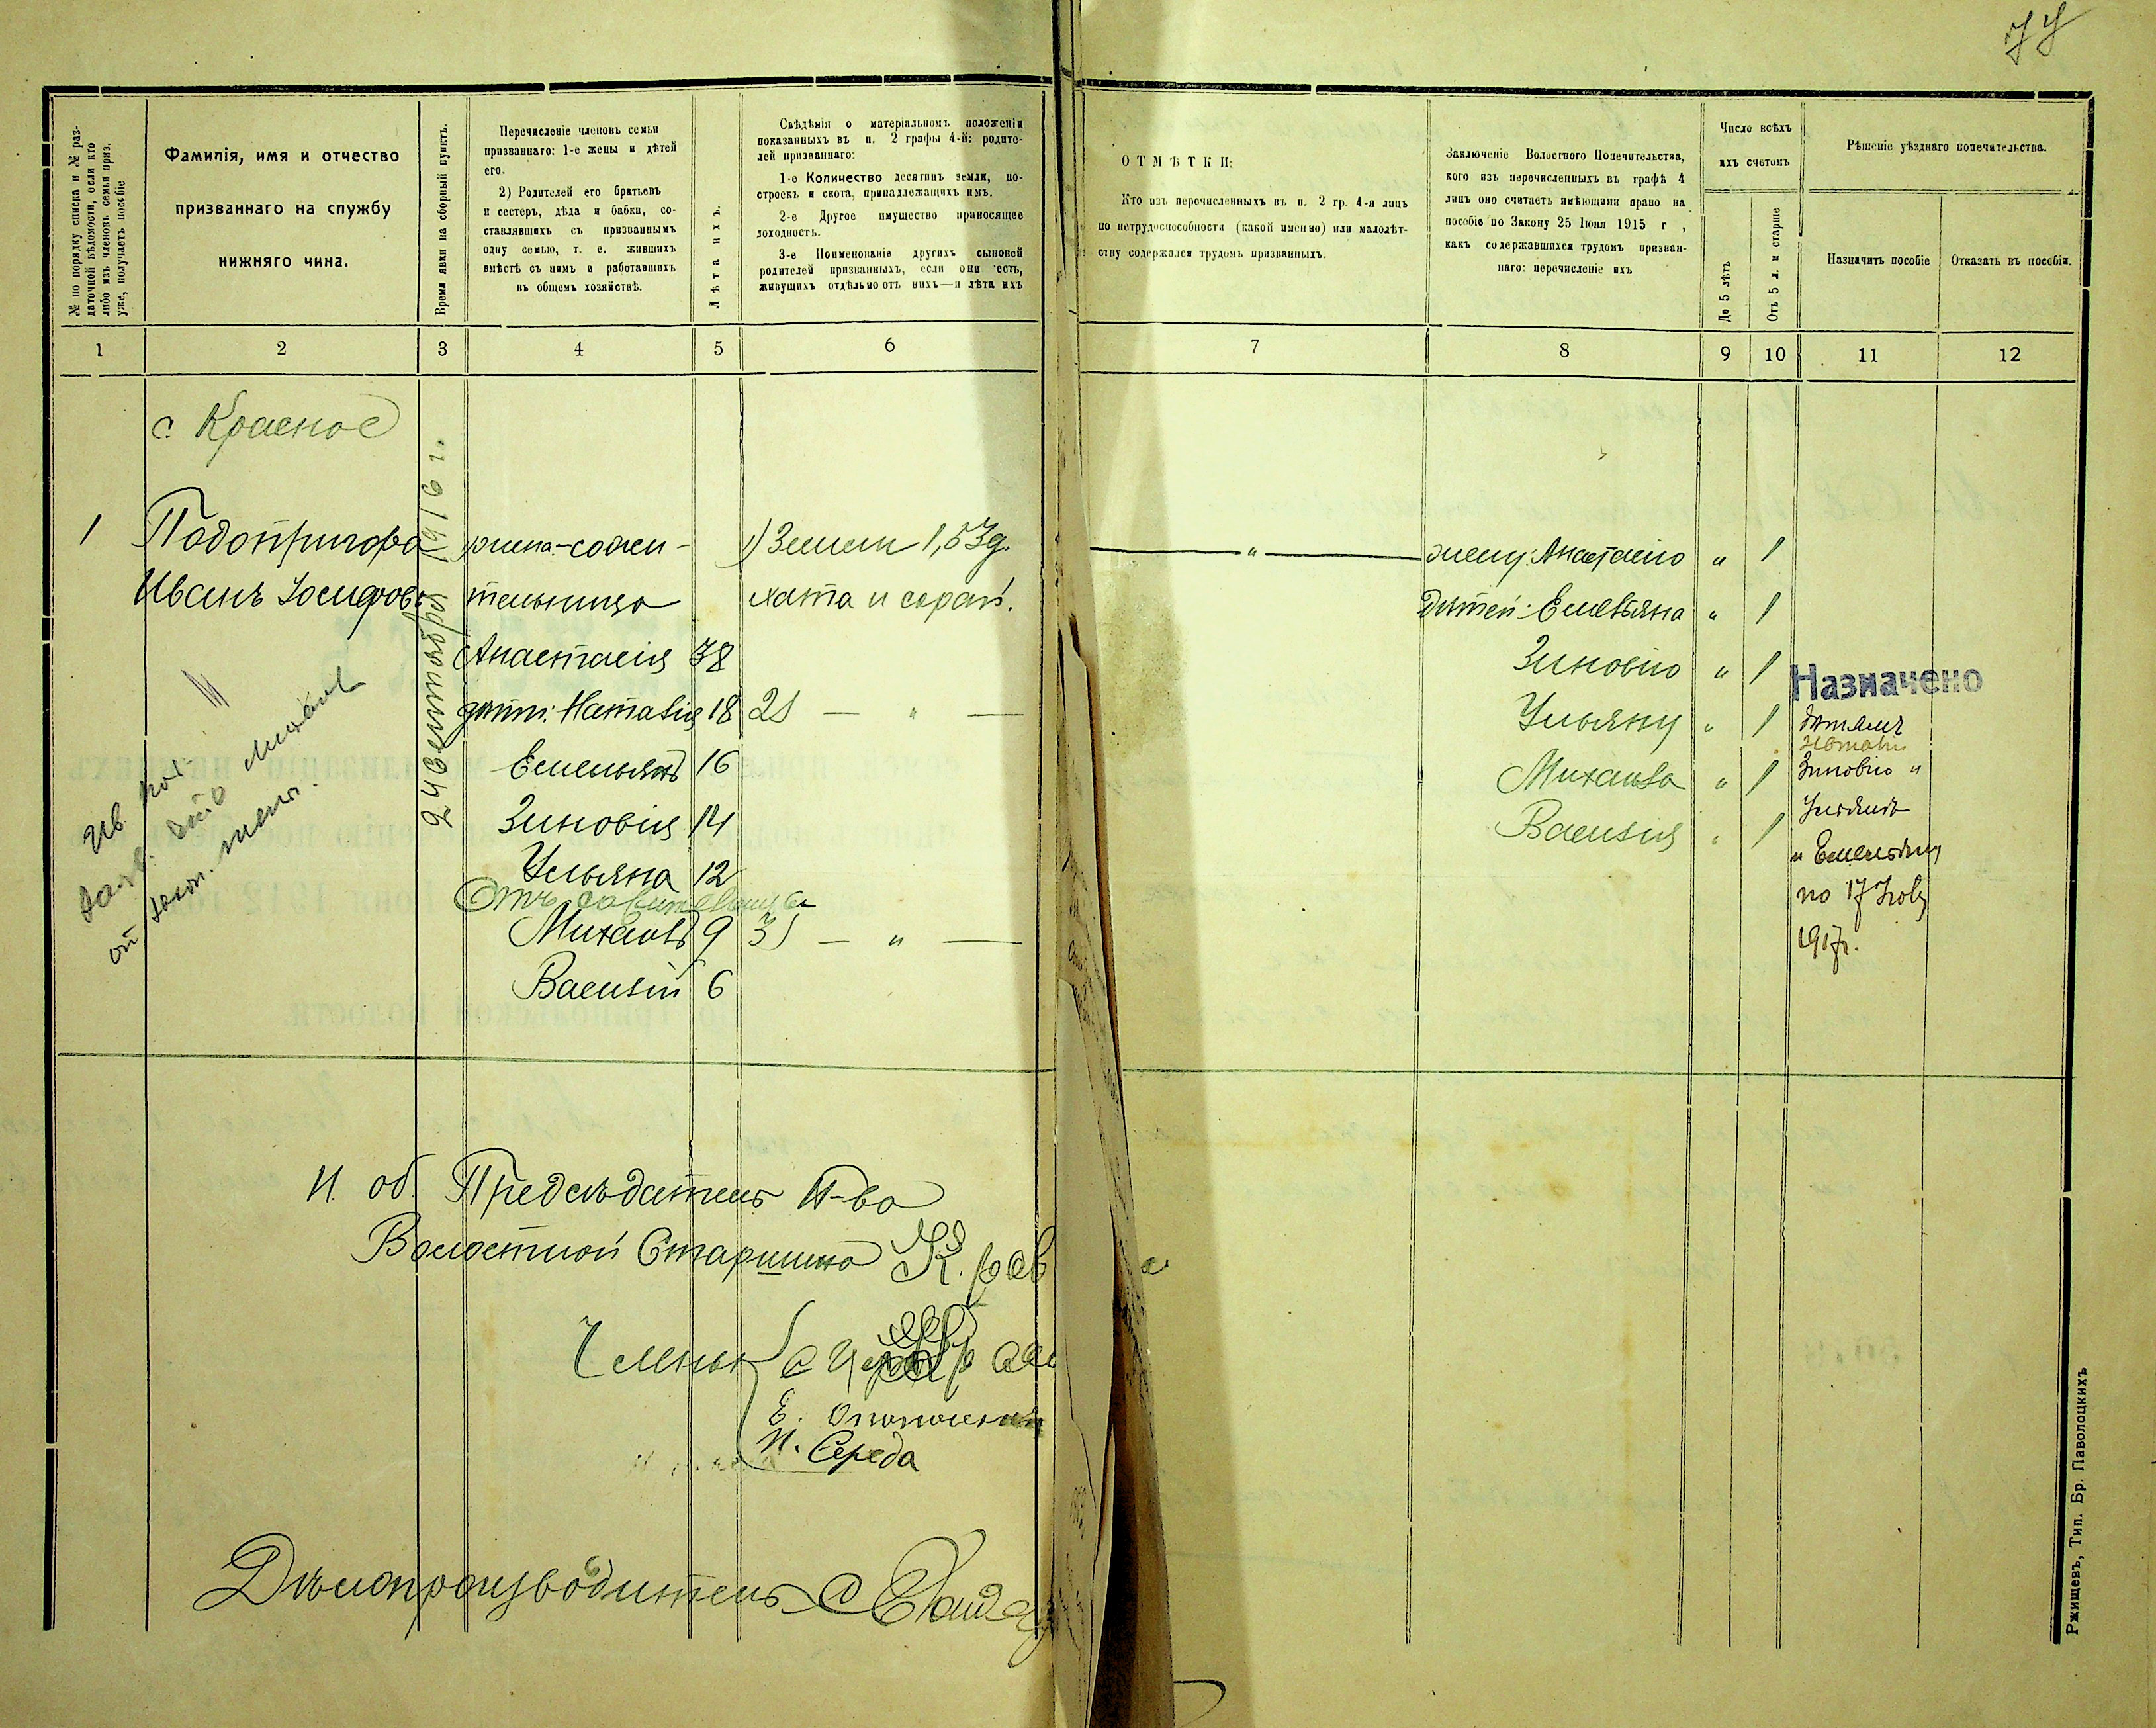 77
№ по порядку списка и № раз-
даточной вѣдомости, если кто
либо изъ членовъ семьи приз.
уже, получаетъ пособіе
Фамилія, имя и отчество
призваннаго на службу
нижняго чина.
Время явки на сборный пунктъ.
Перечисленіе членовъ семьи
призваннаго: 1-е жены и дѣтей
его.
2) Родителей его братьевъ
и сестеръ, дѣда и бабки, со-
ставлявшихъ съ призваннымъ
одну семью, т. е. жившихъ
вмѣстѣ съ нимъ и работавшихъ
въ общемъ хозяйствѣ.
Лѣта ихъ.
Свѣдѣнія о матеріальномъ положеніи
показанныхъ въ п. 2 графы 4-й: родите-
лей призваннаго:
1-е Количество десятинъ земли, по-
строекъ и скота, принадлежащихъ имъ.
2-е Другое имущество приносящее
доходность.
3-е Поименованіе другихъ сыновей
родителей призванныхъ, если они есть,
живущихъ отдѣльно отъ нихъ—и лѣта ихъ
ОТМѢТКИ:
Кто изъ перечисленныхъ въ п. 2 гр. 4-я лицъ
по нетрудоспособности (какой именно) или малолѣт-
ству содержался трудомъ призванныхъ.
Заключеніе Волостного Попечительства,
кого изъ перечисленныхъ въ графѣ 4
лицъ оно считаетъ имѣющими право на
пособіе по Закону 25 Іюня 1915 г ,
какъ содержавшихся трудомъ призван-
наго: перечисленіе ихъ
Число всѣхъ
ихъ счетомъ
До 5 лѣтъ
Отъ 5 л. и старше
Рѣшеніе уѣзднаго попечительства.
Назначить пособіе
Отказать въ пособіи.
1 2 3 4 5 6 7 8 9 10 11 12
с. Красное
24 Сентября 1916 г.
1 Подопригора жена-сожи- 1) Земли 1,53 д. — " — жену: Анастасію " 1
Иванъ Іосифовъ тельница хата и сарай. дѣтей: Емельяна " 1
Анастасія 38 Зиновію " 1
дѣти: Наталія 18 2) — " — Ульяну " 1
Емельянъ 16 Михаила " 1
Зиновія 14 Василія " 1
Ульяна 12
Михаилъ 9 3) — " —
Василій 6
Назначено
дѣтямъ
Зиновію "
Ульянѣ
и Емельяну
по 17 Нояб
1917 г.
И. об. Предсѣдатель П-ва
Волостной Старшина
Члены
Е.
И. Середа
Дѣлопроизводитель
Ржищевъ, Тип. Бр. Паволоцкихъ